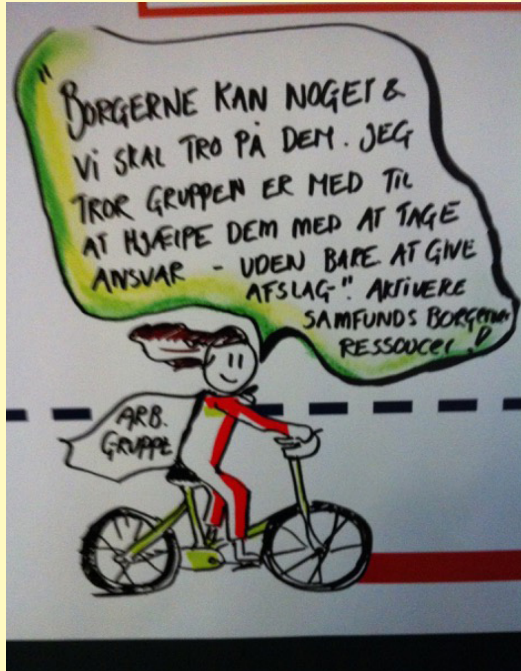 "BORGERNE KAN NOGET &
VI SKAL TRO PÅ DEM. JEG
TROR GRUPPEN ER MED TIL
AT HJÆLPE DEM MED AT TAGE
ANSVAR - UDEN BARE AT GIVE
AFSLAG-". AKTIVERE
SAMFUNDS BORGERNES
RESSOUCER!
ARB.
GRUPPE